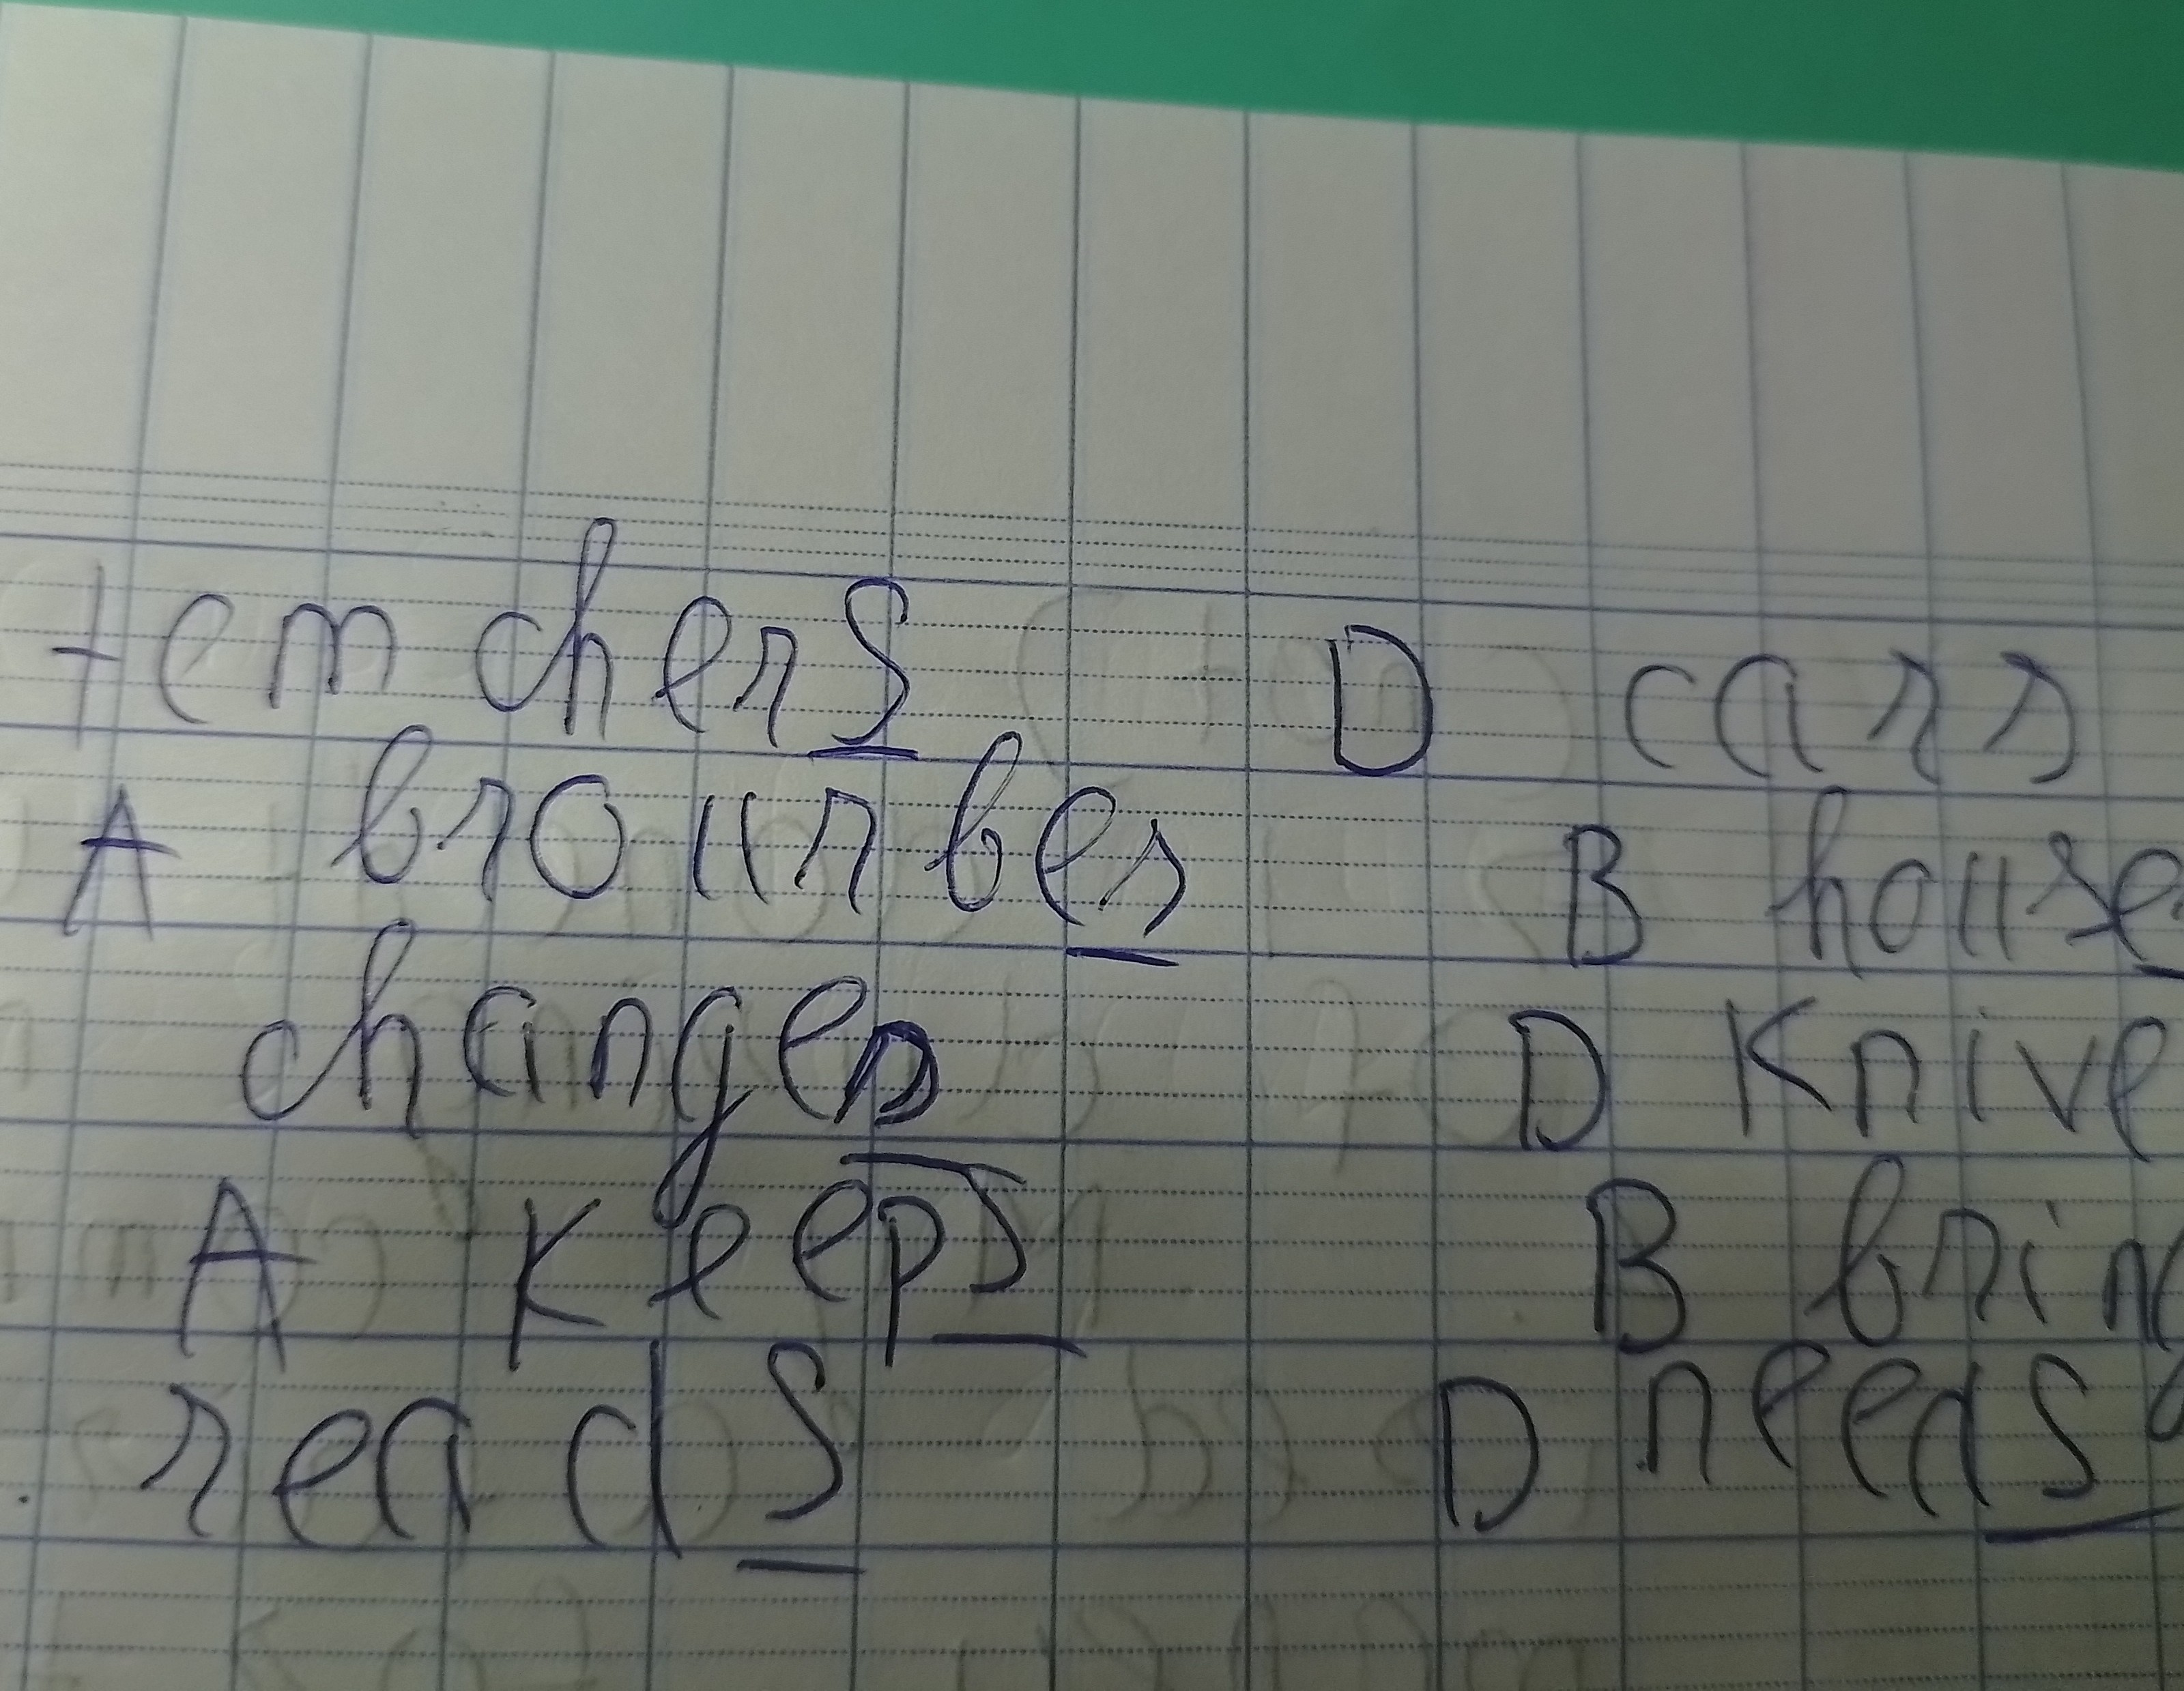 temchers D cars
A brourbes B house
changes D Knive
A Keeps B brin
reads D needs